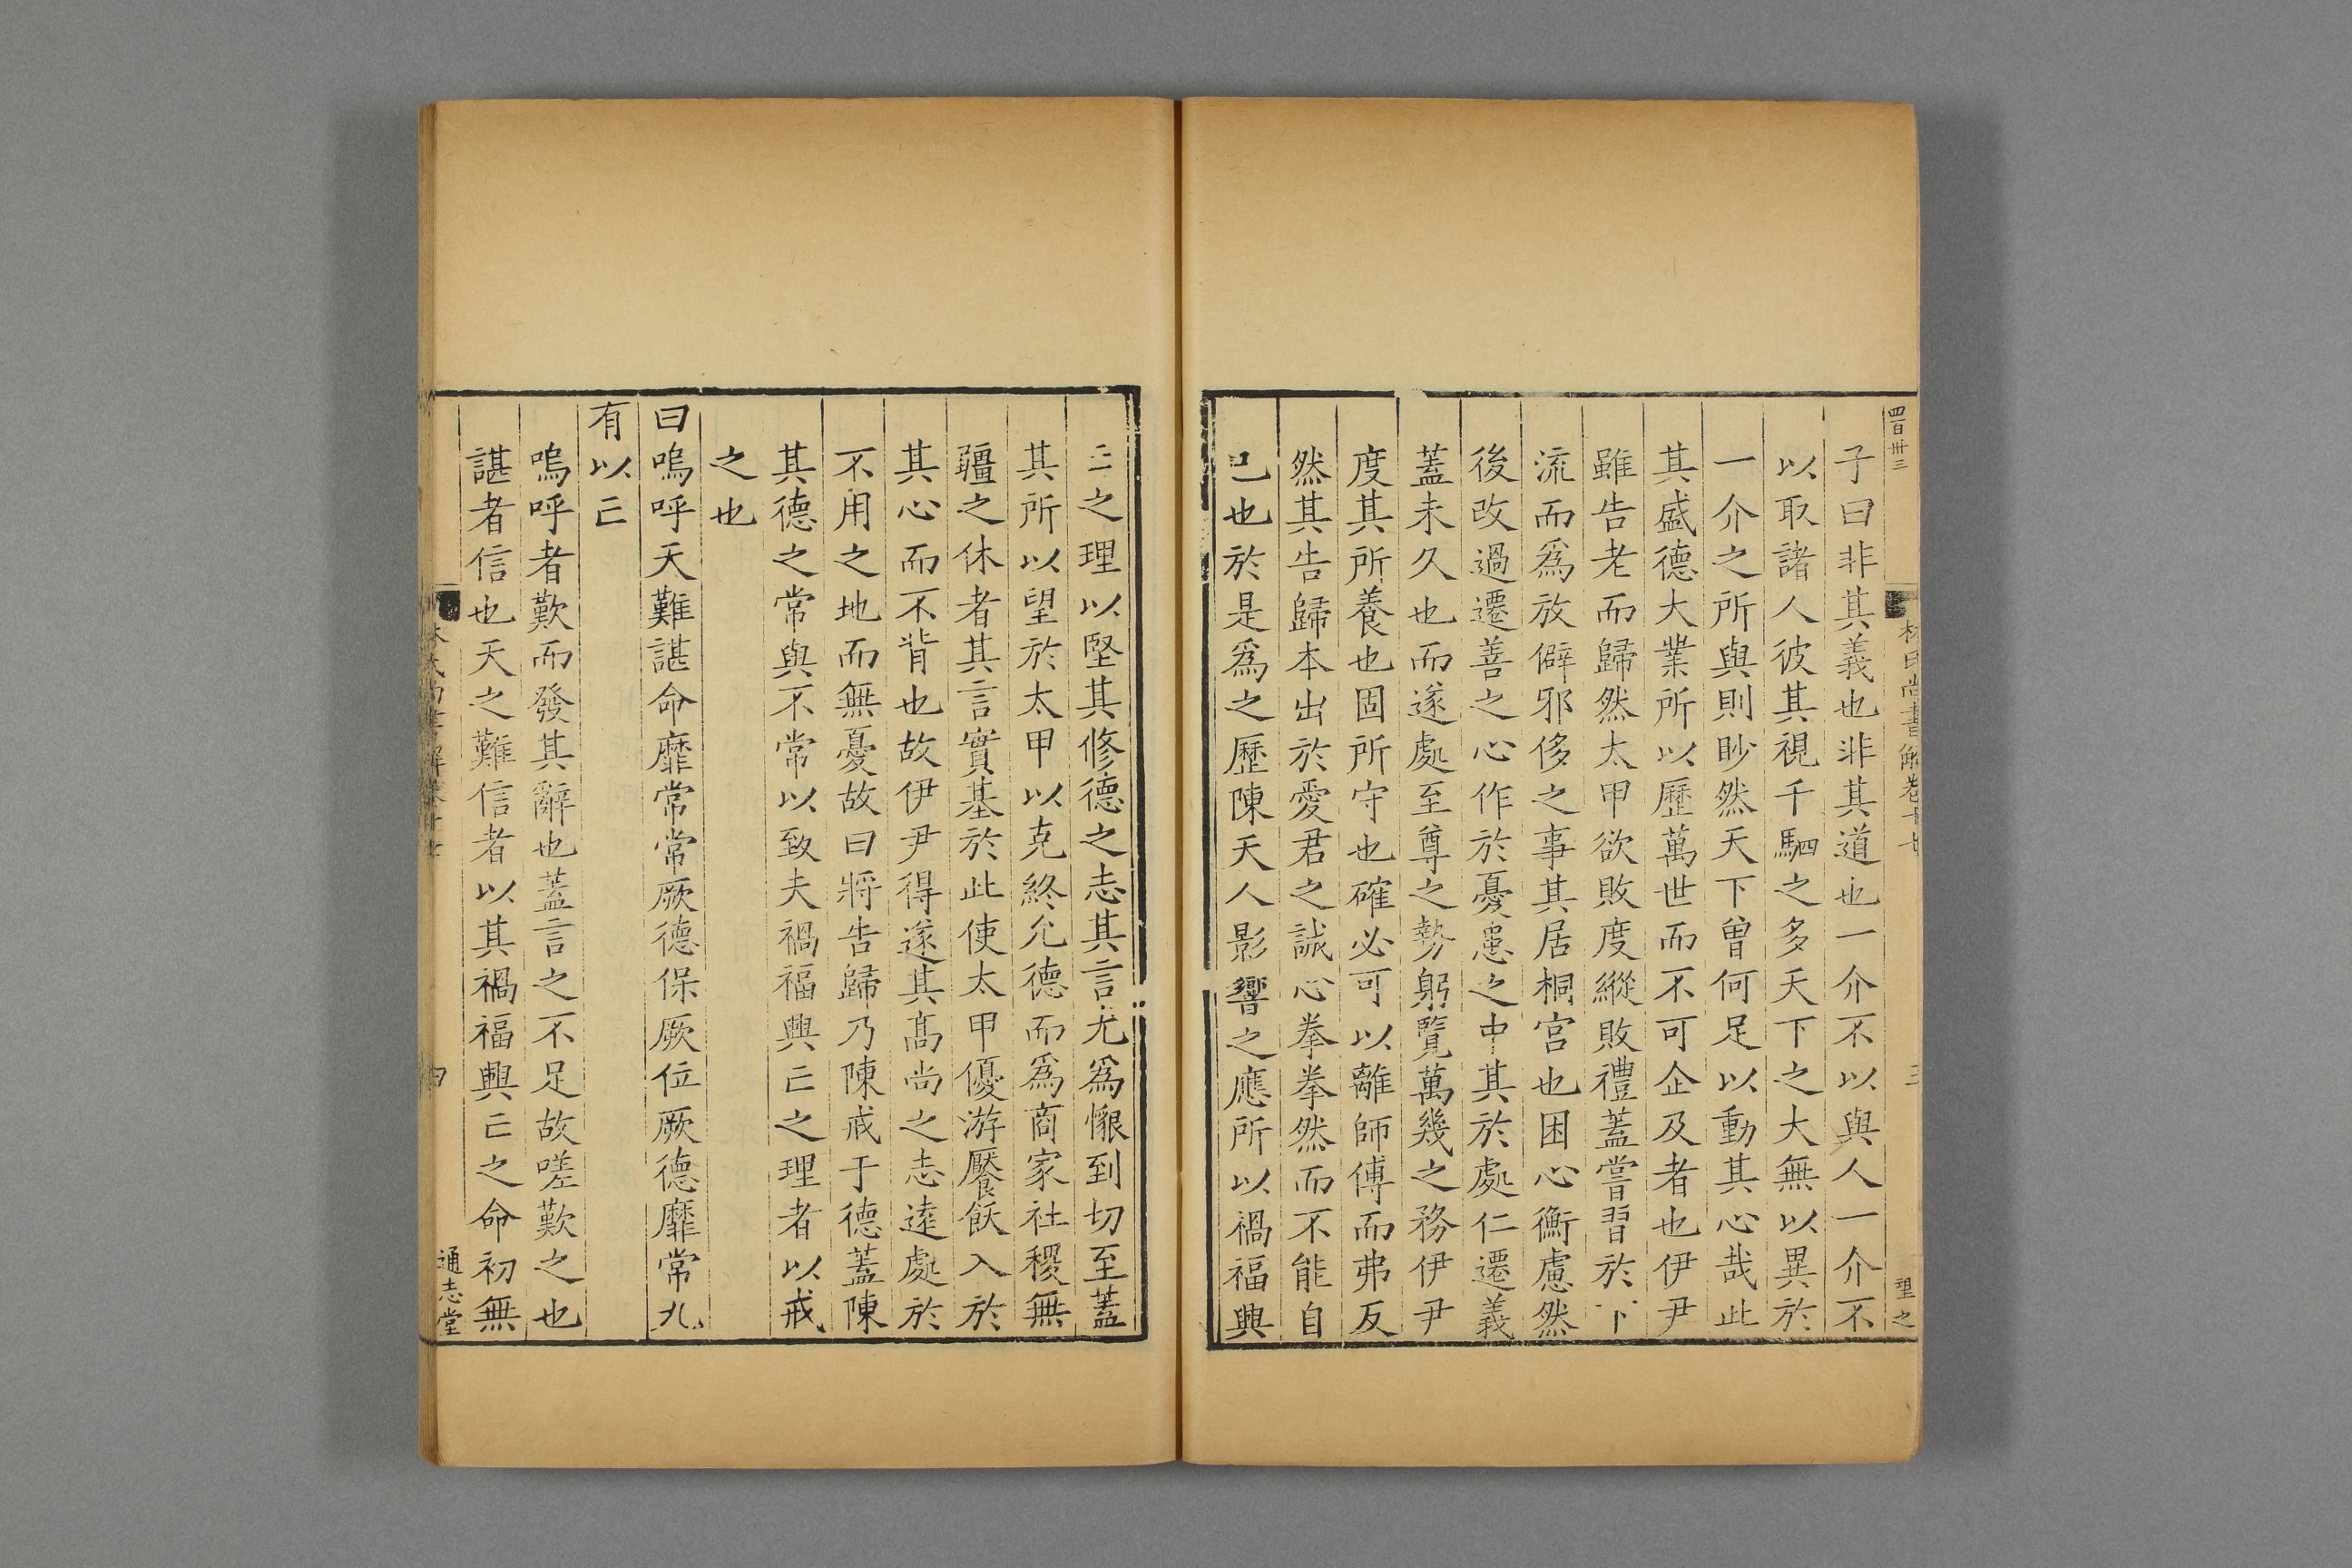 四百卅三
尚書解卷十七
三
理之
子曰非其義也非其道也一介不以與人一介不
以取諸人彼其視千駟之多天下之大無以異於
一介之所與則眇然天下曾何足以動其心哉此
其盛德大業所以歷萬世而不可企及者也伊尹
雖告老而歸然太甲欲敗度縱敗禮蓋嘗習於下
流而爲放僻邪侈之事其居桐宮也困心衡慮然
後改過遷善之心作於憂患之中其於處仁遷義
蓋未久也而遂處至尊之勢躬覽萬幾之務伊尹
度其所養也固所守也確必可以離師傅而弗反
然其告歸本出於愛君之誠心拳拳然而不能自
已也於是爲之歷陳天人影響之應所以禍福興
亡之理以堅其修德之志其言尤爲懇到切至蓋
其所以望於太甲以克終允德而爲商家社稷無
疆之休者其言實基於此使太甲優游饜飫入於
其心而不背也故伊尹得遂其高尚之志逺處於
不用之地而無憂故曰將告歸乃陳戒于德蓋陳
其德之常與不常以致夫禍福興亡之理者以戒
之也
曰嗚呼天難諶命靡常常厥德保厥位厥德靡常九
有以亡
嗚呼者歎而發其辭也蓋言之不足故嗟歎之也
諶者信也天之難信者以其禍福興亡之命初無
四
通志堂